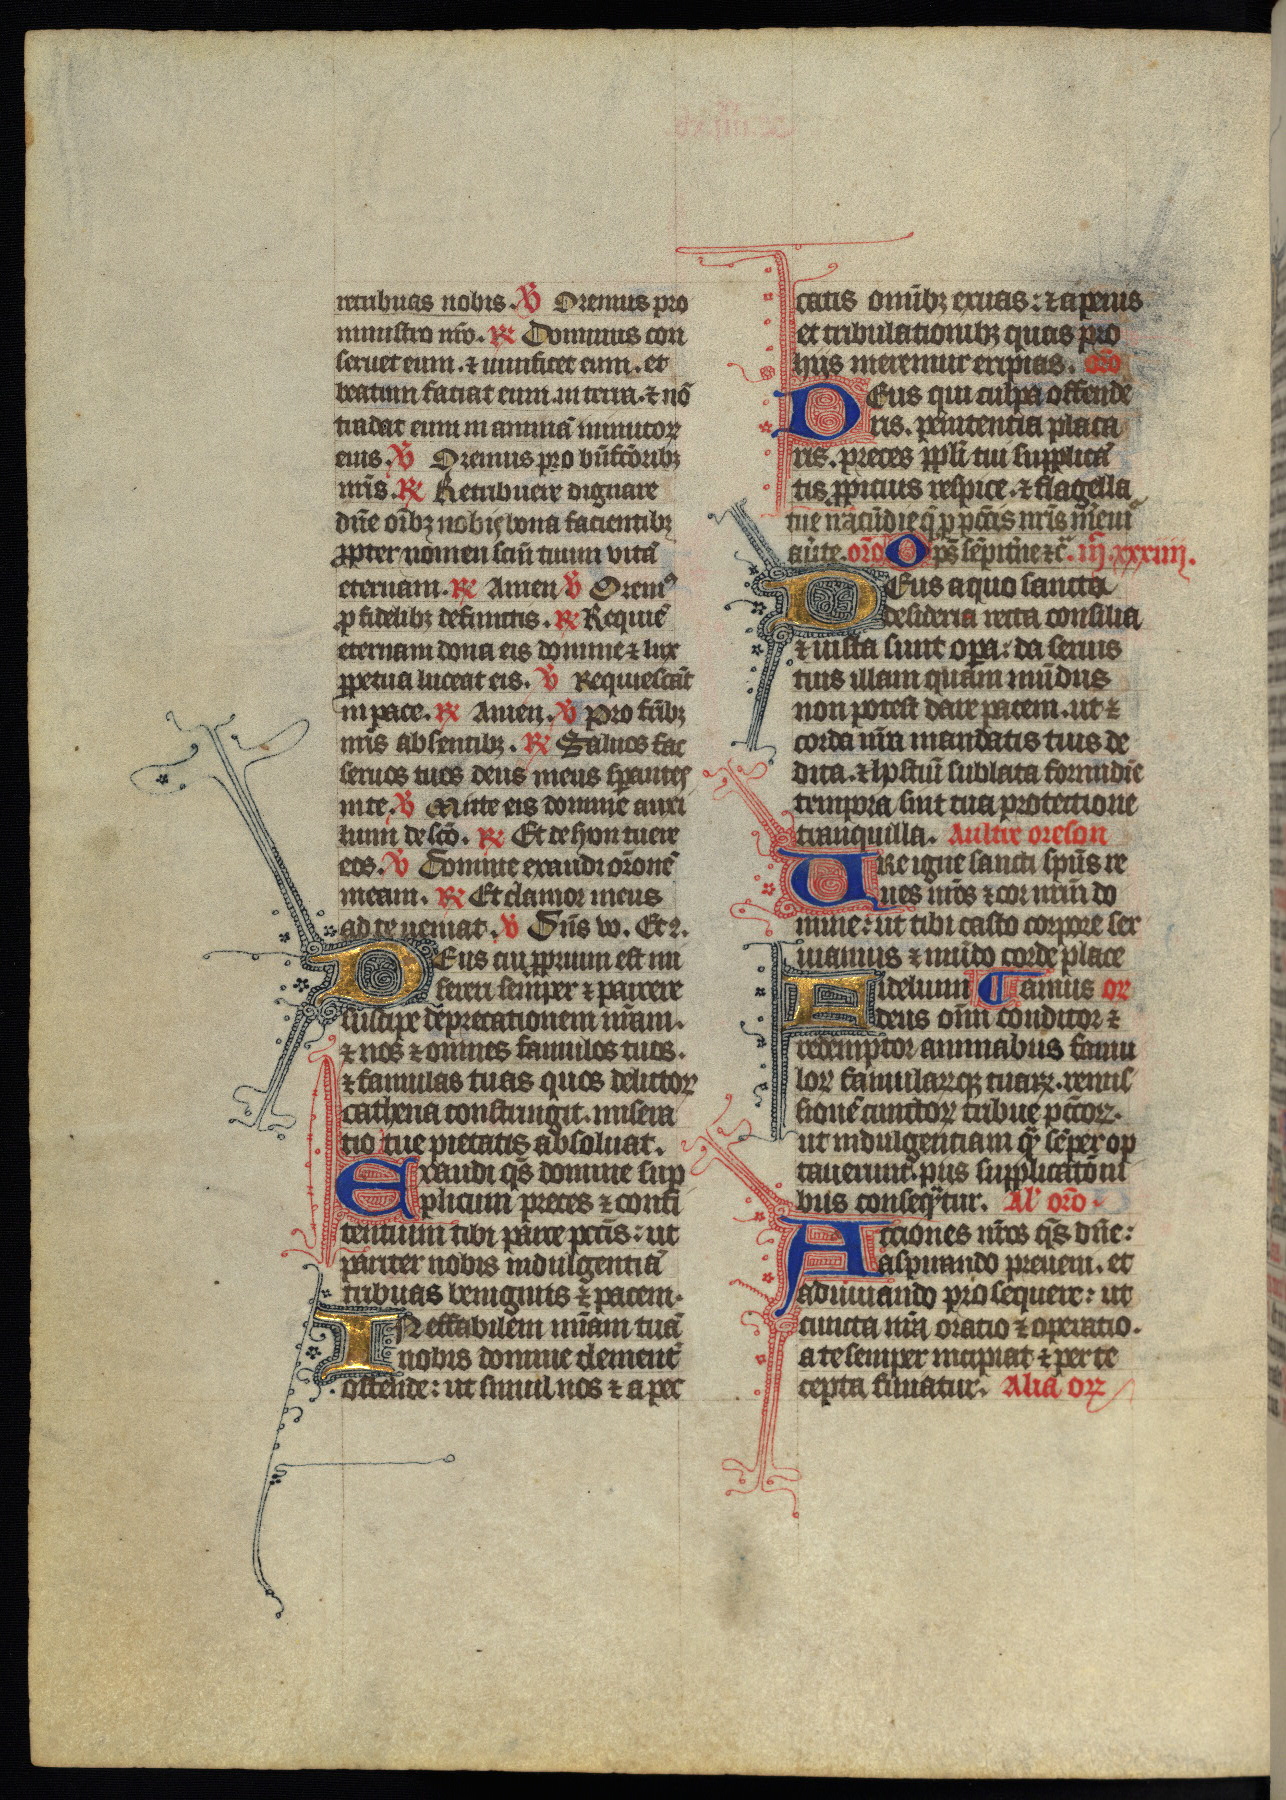 retribuas nobis. V Oremus pro
ministro nr̄o. R Dominus con
seruet eum. ⁊ uiuificet eum. et
beatum faciat eum. in terra. ⁊ nō
tradat eum in animā inimicoꝝ
eius. V Oremus pro bn̄fc̄oribꝫ
nr̄is. R Retribuere dignare
dn̄e oībꝫ nobis bona facientibꝫ
ꝓpter nomen scm̄ tuum vitā
eternam. R Amen V Oremꝰ
ꝓ fidelibꝫ defunctis. R Requiē
eternam dona eis domine ⁊ lux
ꝑpetua luceat eis. V Requiescāt
in pace. R Amen. V Pro fr̄ibꝫ
nr̄is absentibꝫ. R Saluos fac
seruos tuos deus meus sperantes
in te. V Mitte eis domine auxi
lium de sc̄o. R Et de syon tuere
eos. V Domine exaudi or̄onē
meam. R Et clamor meus
ad te ueniat. V Dn̄s vo. Et ⁊.
Deus cui ꝓprium est mi
sereri semper ⁊ parcere
suscipe deprecationem nr̄am.
⁊ nos ⁊ omnes famulos tuos.
⁊ famulas tuas quos delictoꝝ
cathena constringit. misera
tio tue pietatis absoluat.
Exaudi qs̄ domine sup
plicum preces ⁊ confi
tentium tibi parce pcc̄is: ut
pariter nobis indulgentiā
tribuas benignus ⁊ pacem.
INeffabilem nr̄am tuā
nobis domine clement̄
ostende: ut simul nos ⁊ a pec
catis omībꝫ exuas: ⁊ a penis
et tribulationibꝫ quas pro
hijs meremur eripias. or̄o
Deus qui culpa offende
ris. penitentia placa
ris. preces ppl̄i tui supplicā
tis ꝓpicius respice. ⁊ flagella
tue
aūte. or̄o Op̄s sēpit̄ne ⁊c̄. iij. xxxiiij.
Deus a quo sancta
desideria recta consilia
⁊ iusta sunt oꝑa: da seruis
tuis illam quam mūdus
non potest dare pacem. ut ⁊
corda nr̄a mandatis tuis de
dita. ⁊ hostiū sublata formidīe
tempora sint tua protectione
tranquilla. Aultre oreson
URe igne sancti sp̄us re
nes nr̄os ⁊ cor nr̄um do
mine: ut tibi casto corpore ser
uiamus ⁊ mūdo corde place
Fidelium Camus or
deus om̄i conditor ⁊
redemptor animabus famu
loꝝ famularꝙꝫ tuaꝝ. remis
sionē cunctoꝝ tribue pc̄coꝝ.
ut indulgentiam q̄ sēper op
tauerunt. piis supplicationi
bus conseq̄tur. Al' or̄o.
Acciones nr̄as qs̄ dn̄e:
aspirando preueni. et
adiuuando prosequere: ut
cuncta nr̄a oratio ⁊ operatio.
a te semper incipiat ⁊ per te
cepta finiatur. Alia oꝝ